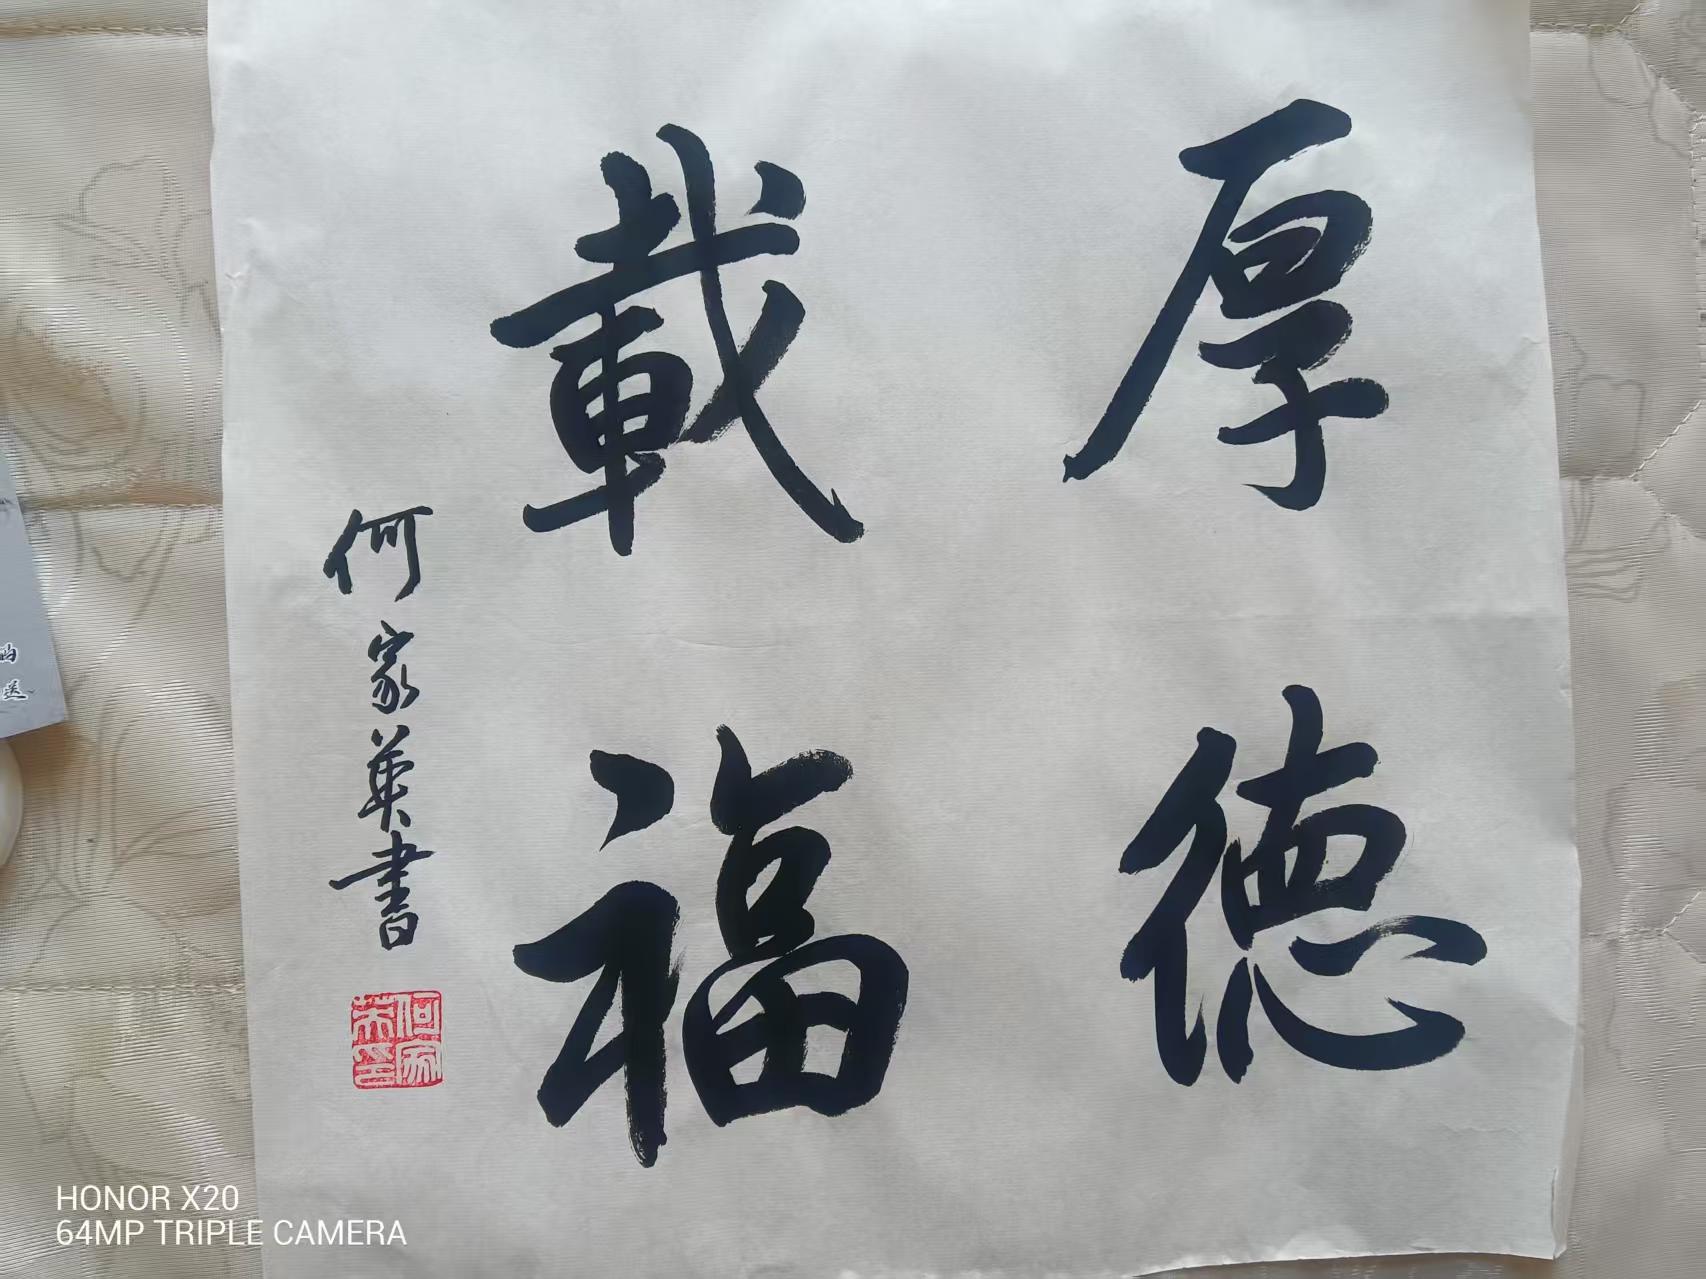 厚德
載福
何家英書
何家英印
的
送
HONOR X20
64MP TRIPLE CAMERA